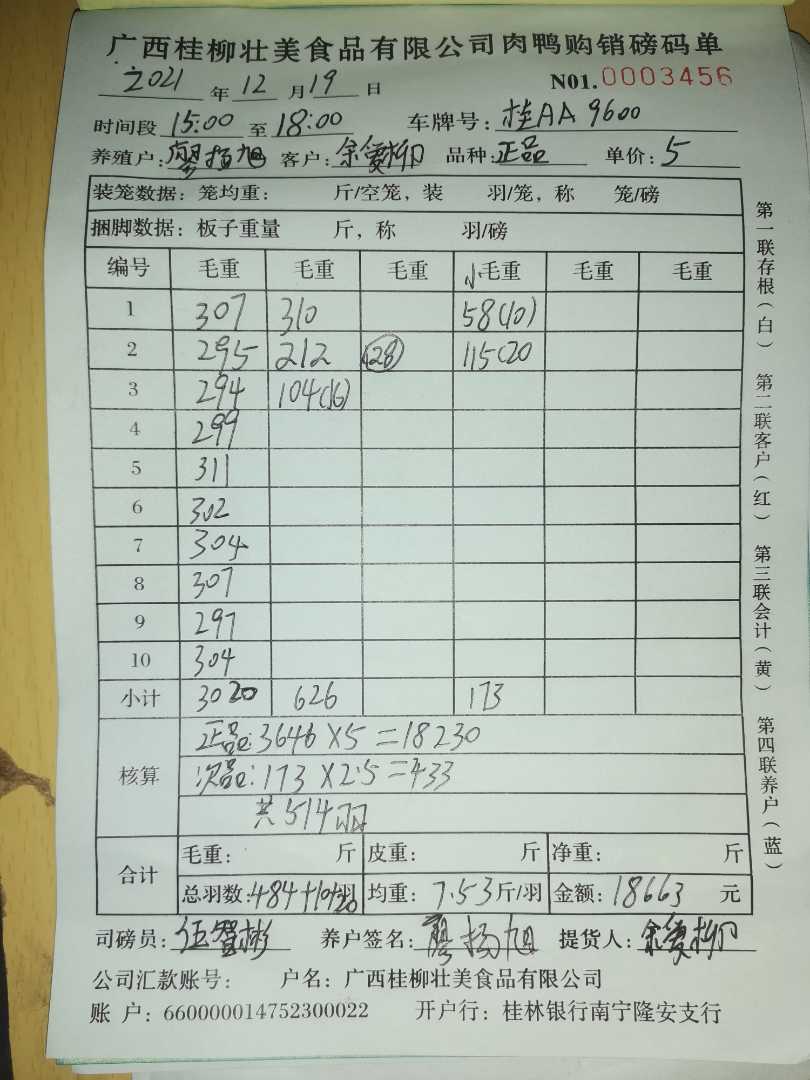 广西桂柳壮美食品有限公司肉鸭购销磅码单
2021 年 12 月 19 日 N01.0003456
时间段 15:00 至 18:00 车牌号: 桂AA9600
养殖户: 廖扬旭 客户: 余爱柳 品种: 正品 单价: 5
装笼数据: 笼均重: 斤/空笼, 装 羽/笼, 称 笼/磅
捆脚数据: 板子重量 斤, 称 羽/磅
编号 毛重 毛重 毛重 小毛重 毛重 毛重
1 307 310 58(10)
2 295 212 (28) 115(20
3 294 104(16)
4 299
5 311
6 302
7 304
8 307
9 297
10 304
小计 3020 626 173
核算 正品:3646×5=18230
次品:173×2.5=433
共514羽
合计 毛重: 斤 皮重: 斤 净重: 斤
总羽数:484+10+20羽 均重: 7.53斤/羽 金额: 18663 元
司磅员: 伍智彬 养户签名: 廖扬旭 提货人: 余爱柳
公司汇款账号: 户名: 广西桂柳壮美食品有限公司
账 户: 660000014752300022 开户行: 桂林银行南宁隆安支行
第一联存根(白) 第二联客户(红) 第三联会计(黄) 第四联养户(蓝)